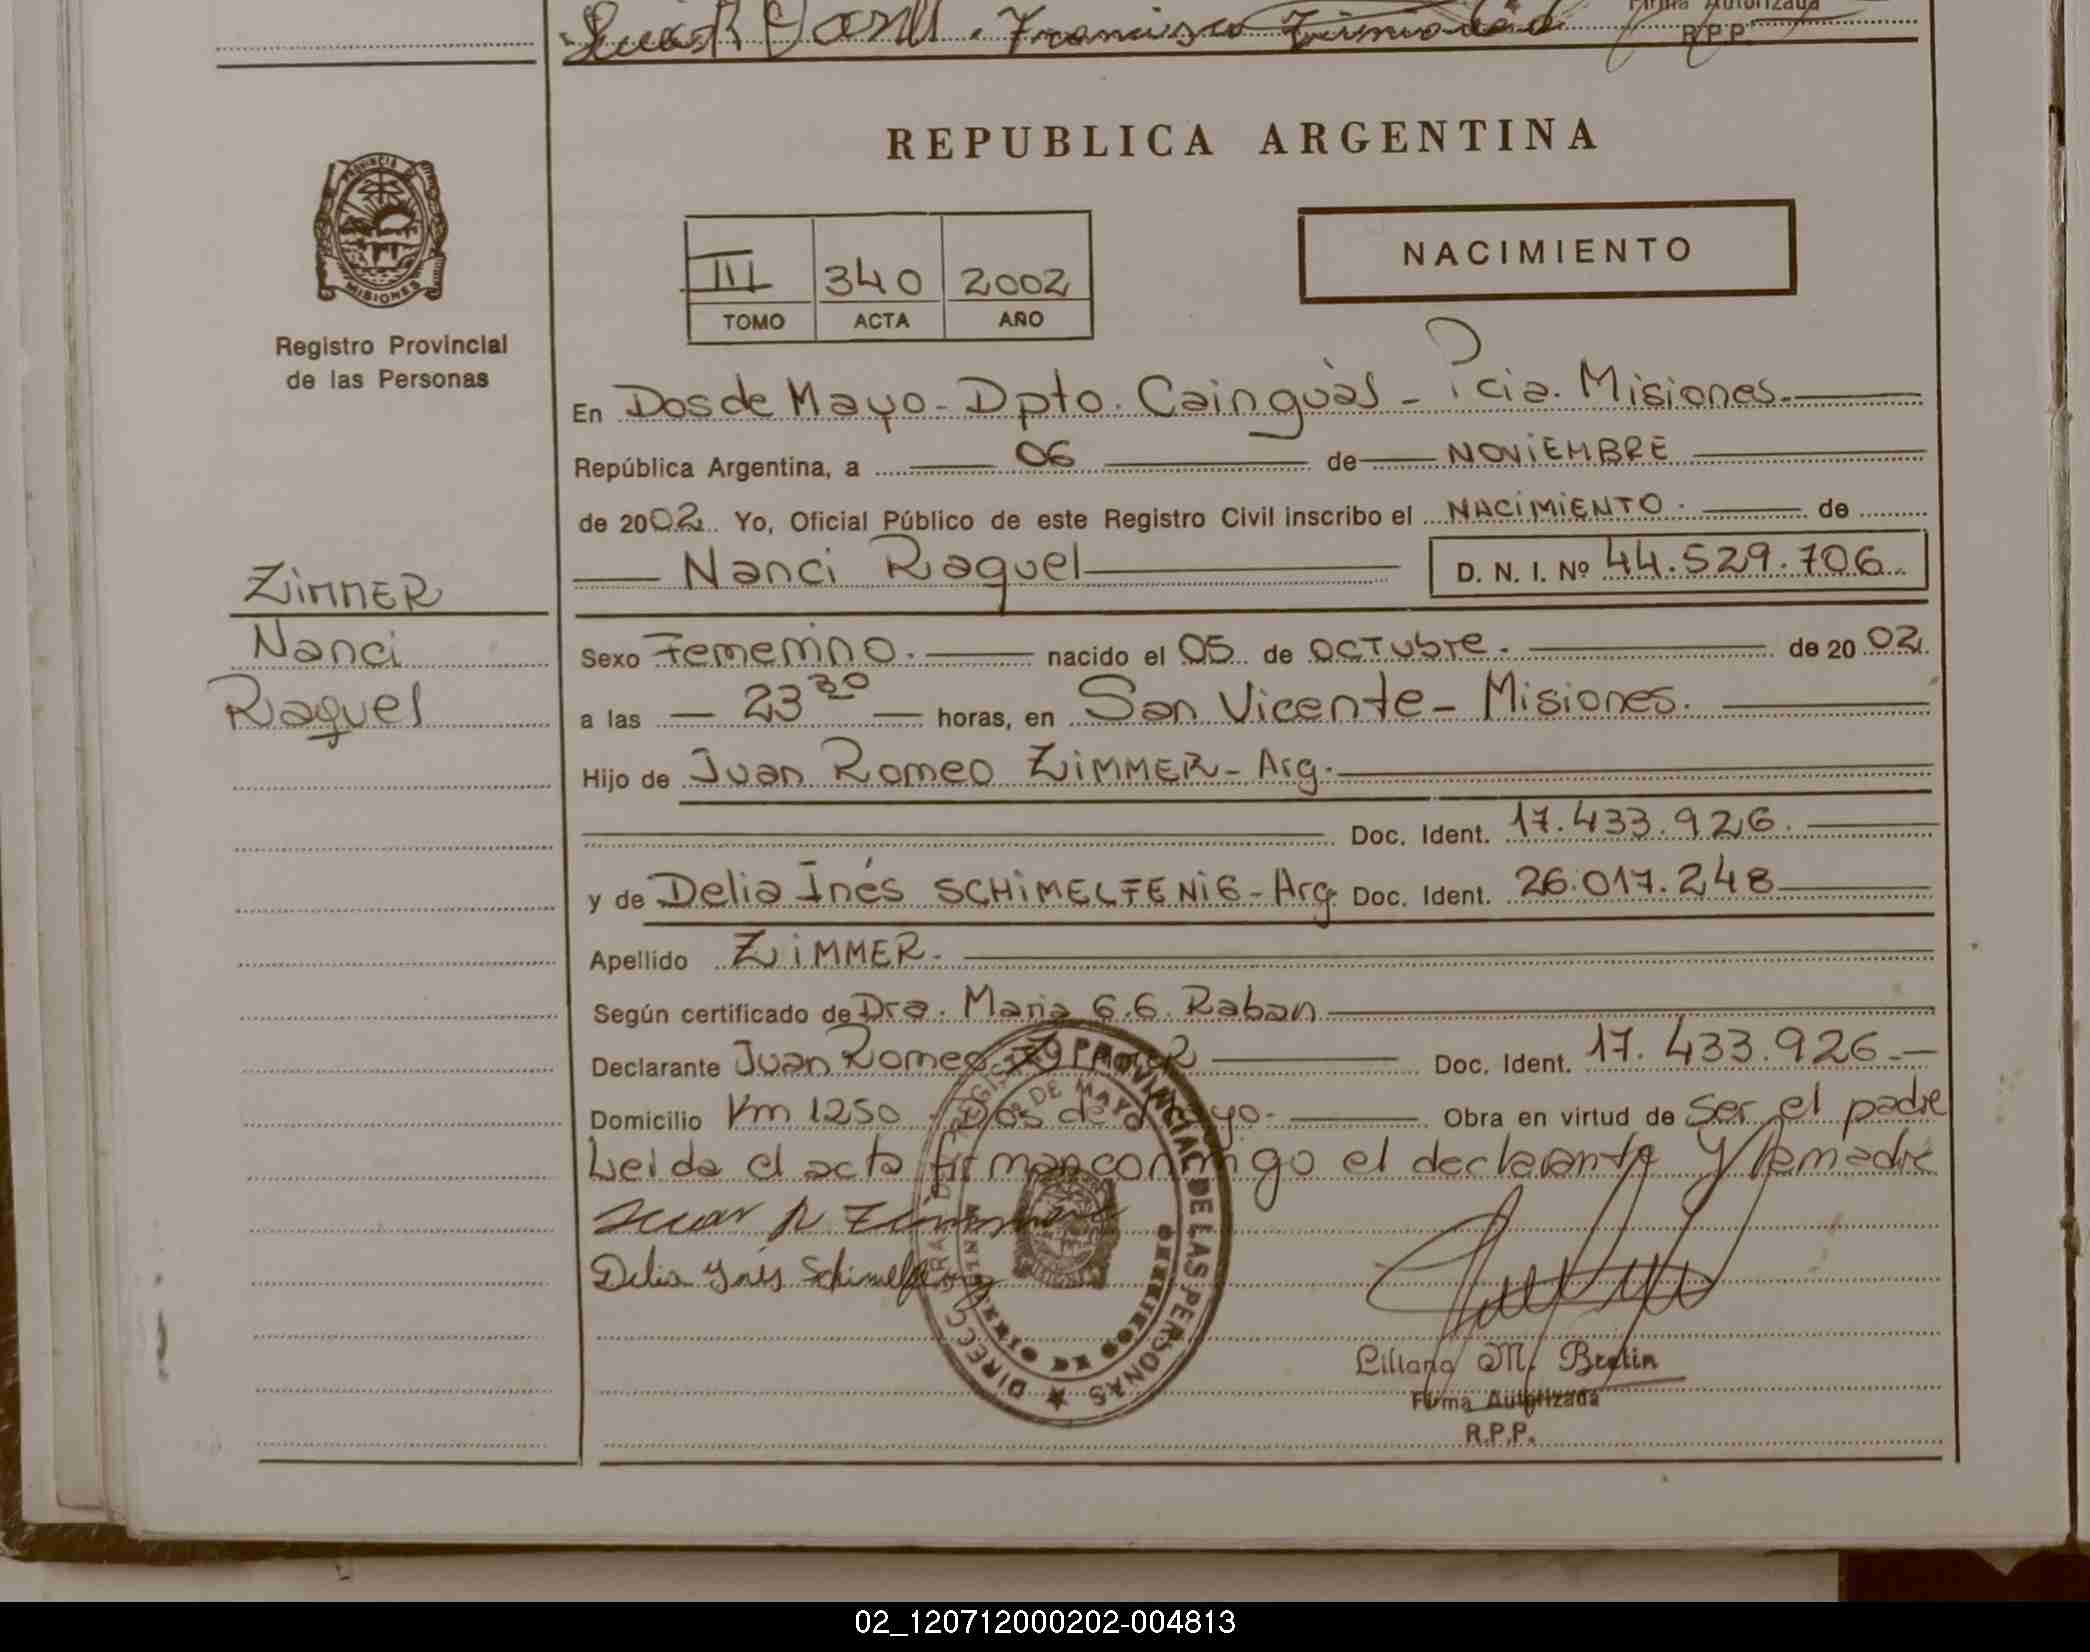 Francisco
Firma Autorizada
R.P.P.
PROVINCIA DE
MISIONES
Registro Provincial
de las Personas
REPUBLICA ARGENTINA
III 340 2002
TOMO ACTA AÑO
NACIMIENTO
En Dos de Mayo - Dpto. Cainguàs - Pcia. Misiones.
República Argentina, a 06 de NOVIEMBRE
de 2002 Yo, Oficial Público de este Registro Civil inscribo el NACIMIENTO. de
Nanci Raquel D. N. I. Nº 44.529.706
ZIMMER
Nanci
Raquel
Sexo Femenino. nacido el 05 de OCTUbre. de 20 02.
a las 23 30 horas, en San Vicente - Misiones.
Hijo de Juan Romeo ZIMMER - Arg.
Doc. Ident. 17.433.926.
y de Delia Inés SCHIMELFENIG - Arg. Doc. Ident. 26.017.248
Apellido ZIMMER.
Según certificado de Dra. Maria G.G. Raban
Declarante Juan Romeo ZIMMER Doc. Ident. 17.433.926.
Domicilio Km 1250 Dos de Mayo. Obra en virtud de ser el padre
Leida el acta firman conmigo el declarante y la madre
Juan R Zimmer
Delia Ynés Schimelfenig
DIRECC GRAL DE REGISTRO PROVINCIAL DE LAS PERSONAS
DOS DE MAYO
Liliana M. Brelin
Firma Autorizada
R.P.P.
02_120712000202-004813